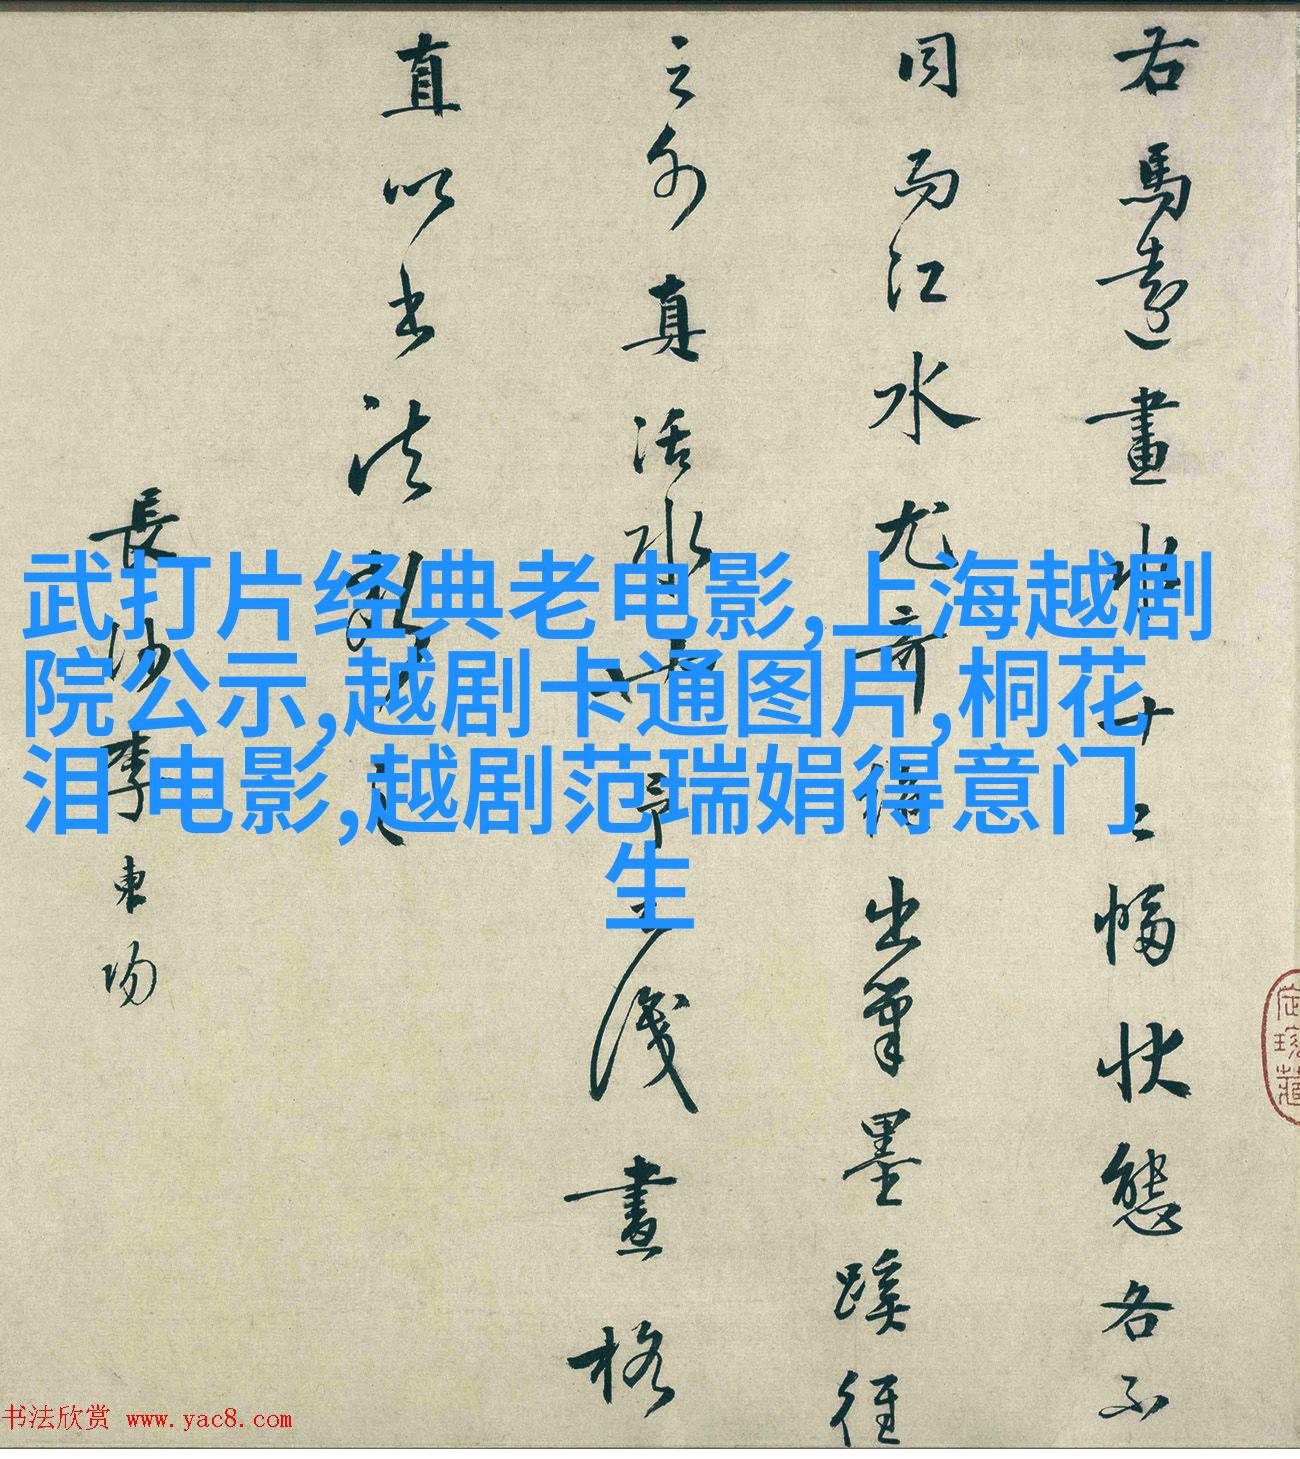 右馬遠畫水十二幅狀態各不
同而江水尤奇絕出筆墨蹊徑
之外真活水也予不識畫格
直以書法斷之
長沙李東陽
武打片经典老电影,上海越剧
院公示,越剧卡通图片,桐花
泪 电影,越剧范瑞娟得意门
生
书法欣赏 www.yac8.com